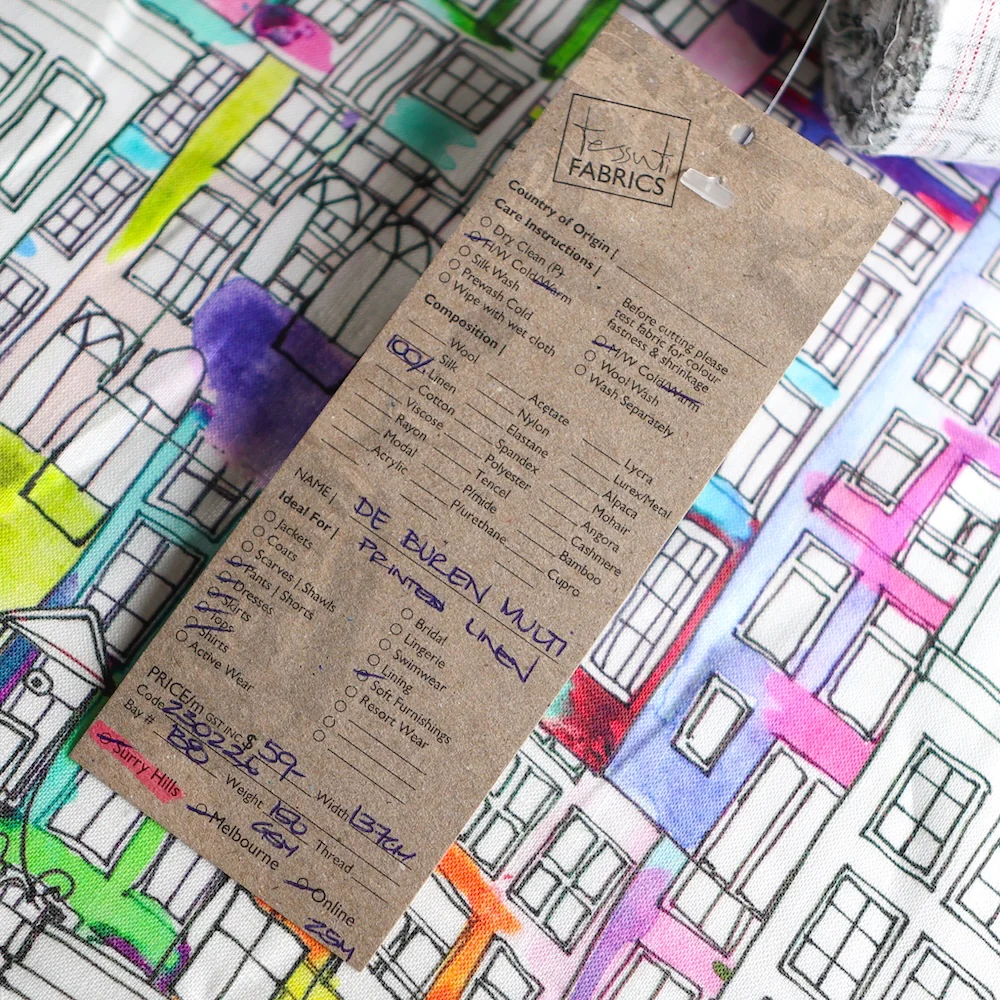 Tessuti
FABRICS
Country of Origin |
Care Instructions |
Dry Clean (P)
H/W Cold/Warm
Silk Wash
Prewash Cold
Wipe with wet cloth
Before cutting please
test fabric for colour
fastness & shrinkage
M/W Cold/Warm
Wool Wash
Wash Separately
Composition |
Wool
Silk
100% Linen
Cotton
Viscose
Rayon
Modal
Acrylic
Acetate
Nylon
Elastane
Spandex
Polyester
Tencel
Pimide
Plurethane
Lycra
Lurex/Metal
Alpaca
Mohair
Angora
Cashmere
Bamboo
Cupro
NAME | DE BUREN MULTI
PRINTED LINEN
Ideal For |
Jackets
Coats
Scarves | Shawls
Pants | Shorts
Dresses
Skirts
Tops
Shirts
Active Wear
Bridal
Lingerie
Swimwear
Lining
Soft Furnishings
Resort Wear
PRICE/m GST INC $ 59-
Code 230226
Bay # B80
Weight 150 GSM
Width 137CM
Thread
Surry Hills
Melbourne
Online
25M